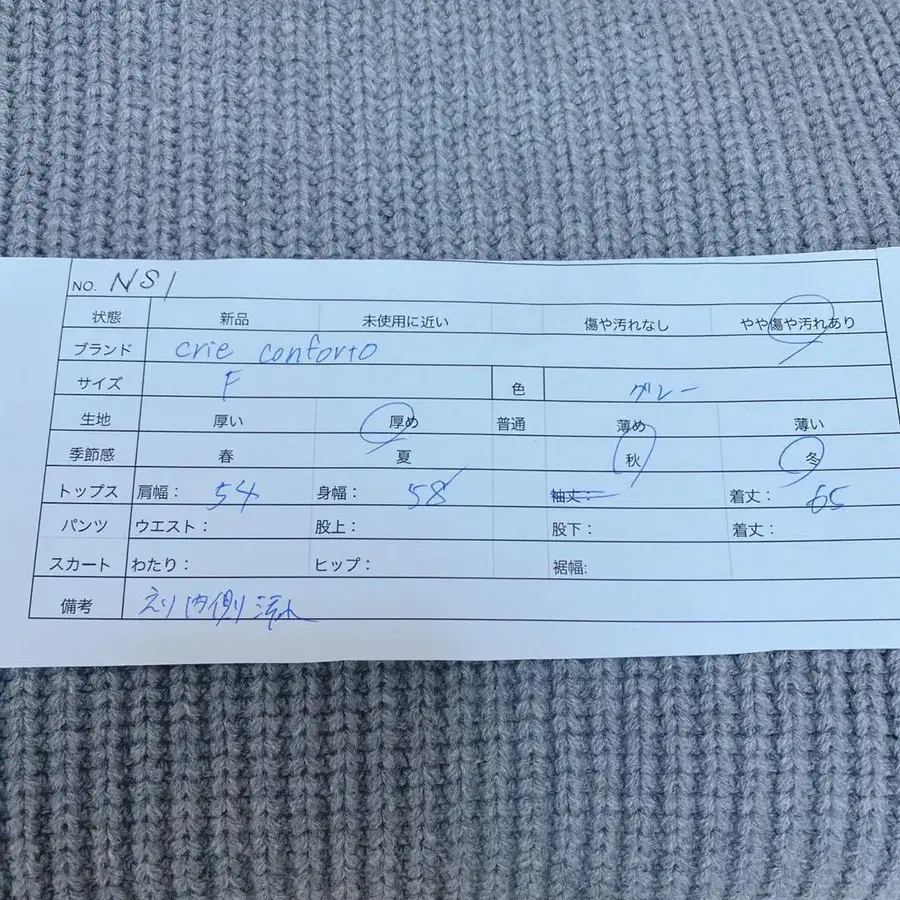 NO. NS1
状態 新品 未使用に近い 傷や汚れなし やや傷や汚れあり
ブランド crie conforto
サイズ F 色 グレー
生地 厚い 厚め 普通 薄め 薄い
季節感 春 夏 秋 冬
トップス 肩幅: 54 身幅: 58 袖丈: 着丈: 65
パンツ ウエスト: 股上: 股下: 着丈:
スカート わたり: ヒップ: 裾幅:
備考 えり内側汚れ